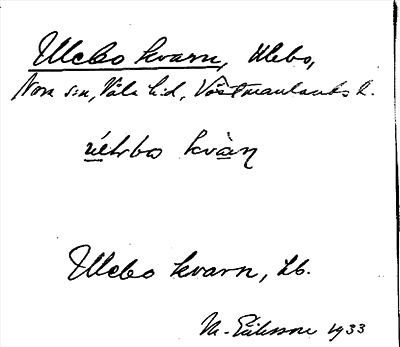 Ulebo kvarn, Ulebo,
Nora sn, Våla hd, Västmanlands l.
kvàɳ
Ulebo kvarn, hb.
M. Eriksson 1933